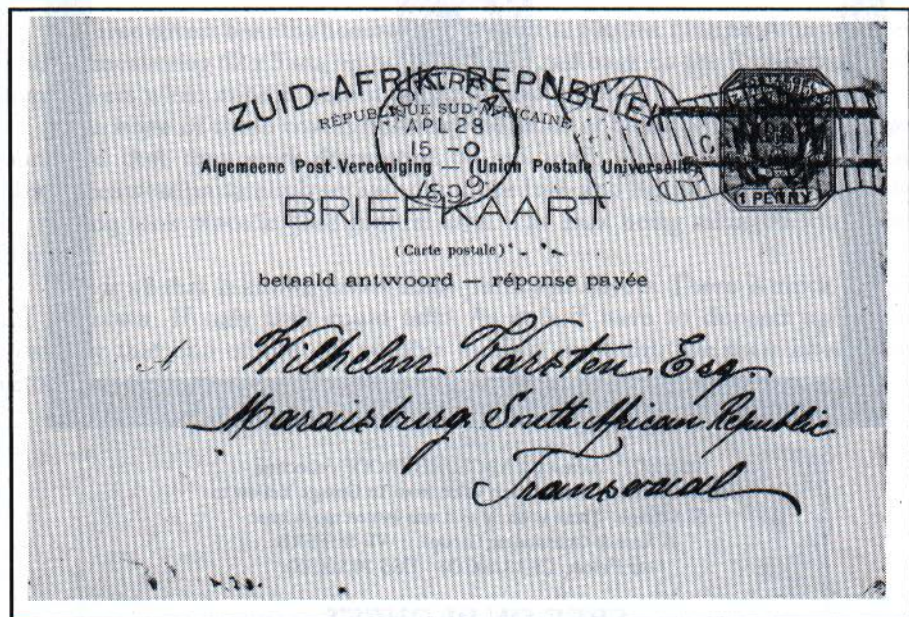 ZUID-AFRIK. REPUBLIEK
RÉPUBLIQUE SUD-AFRICAINE
MONTREAL
APL 28
15 - 0
1899
Algemeene Post-Vereeniging — (Union Postale Universelle)
BRIEFKAART
(Carte postale)
betaald antwoord — réponse payée
1 PENNY
Wilhelm Karsten Esq.
Maraisburg South African Republic
Transvaal